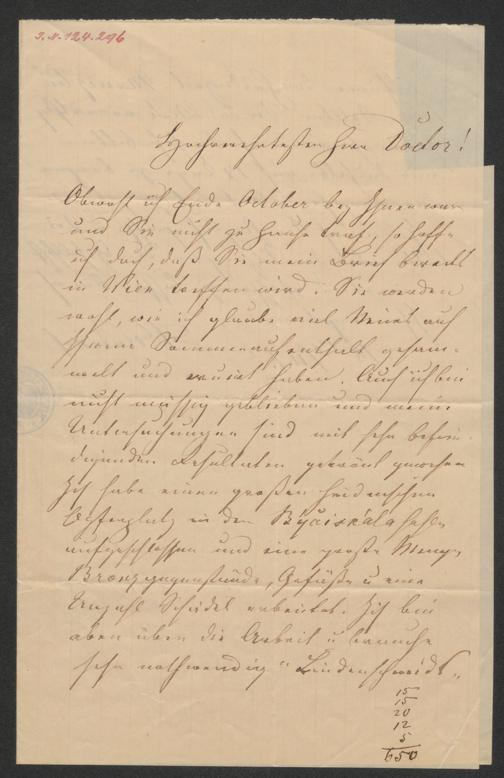 J.N. 124.296
Hochverehrtester Herr Doctor!
Obwohl ich Ende October bey Ihnen war
und Sie nicht zu Hause traf, so hoffe
ich doch, daß Sie mein Brief bereits
in Wien treffen wird. Sie werden
wohl, wie ich glaube viel Neues auf
Ihrem Sommeraufenthalt gesam-
melt und haben. Auch ich bin
nicht müssig geblieben und meine
Untersuchungen sind mit sehr befrie-
digenden Resultaten gekrönt gewesen
Ich habe einen großen heidnischen
Opferplatz in der Býčiskálahöhle
aufgeschlossen und eine große Menge
Bronzgegenstände, Gefäße u eine
Anzahl Schädel erbeutet. Ich bin
eben über die Arbeit u brauche
sehr nothwendig "Lindenschmidt"
15
15
20
12
5
650